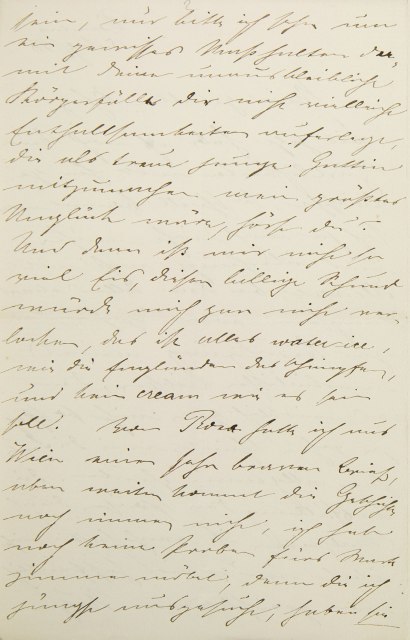 sein, nur bitte ich sehr um
ein gewisses Maßhalten da-
mit deine unausbleibliche
Körperfülle dir nicht vielleicht
Enthaltsamkeiten auferlege,
die als treue junge Gattin
mitzumachen mein größtes
Unglück wäre, hörst du?
Und dann iß mir nicht so
viel Eis, dieser billige Schund
würde mich gar nicht ver-
locken, das ist alles water-ice,
wie die Engländer das schimpfen,
und kein cream wie es sein
soll. Von Rosa hatte ich aus
Wien einen sehr braven Bericht,
aber weiter kommt die Geschichte
noch immer nicht, ich habe
noch keine Proben fürs
zimmer möbel, denn die ich
jüngst ausgesucht, haben sie